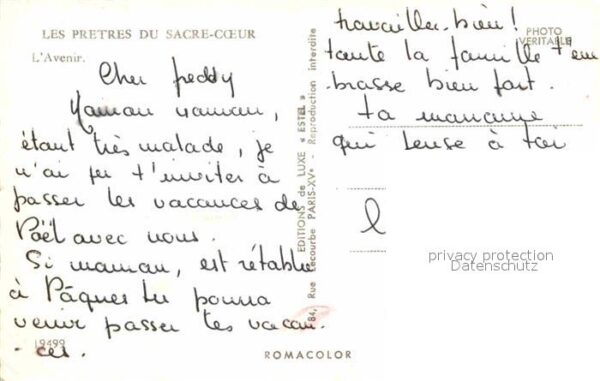 LES PRETRES DU SACRE-CŒUR
L'Avenir.
Cher freddy
Maman maman,
étant très malade, je
n'ai pu t'inviter à
passer les vacances de
Noël avec nous.
Si maman, est rétablie
à Pâques tu pourra
venir passer tes vacan.
- ces.
19499
ROMACOLOR
84, Rue Lecourbe PARIS-XVe
EDITIONS de LUXE « ESTEL » - Reproduction interdite
PHOTO
VERITABLE
travailler bien!
toute la famille t'em
-brasse bien fort.
ta marraine
qui pense à toi
privacy protection
Datenschutz